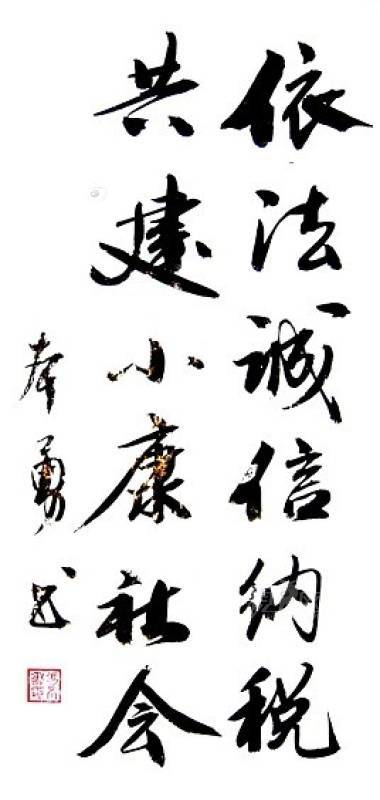 依法诚信纳税
共建小康社会
春勇书